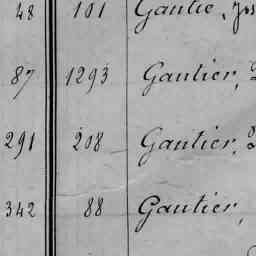 48 101 Gautie,
87 1293 Gautier,
291 208 Gautier,
342 88 Gautier,